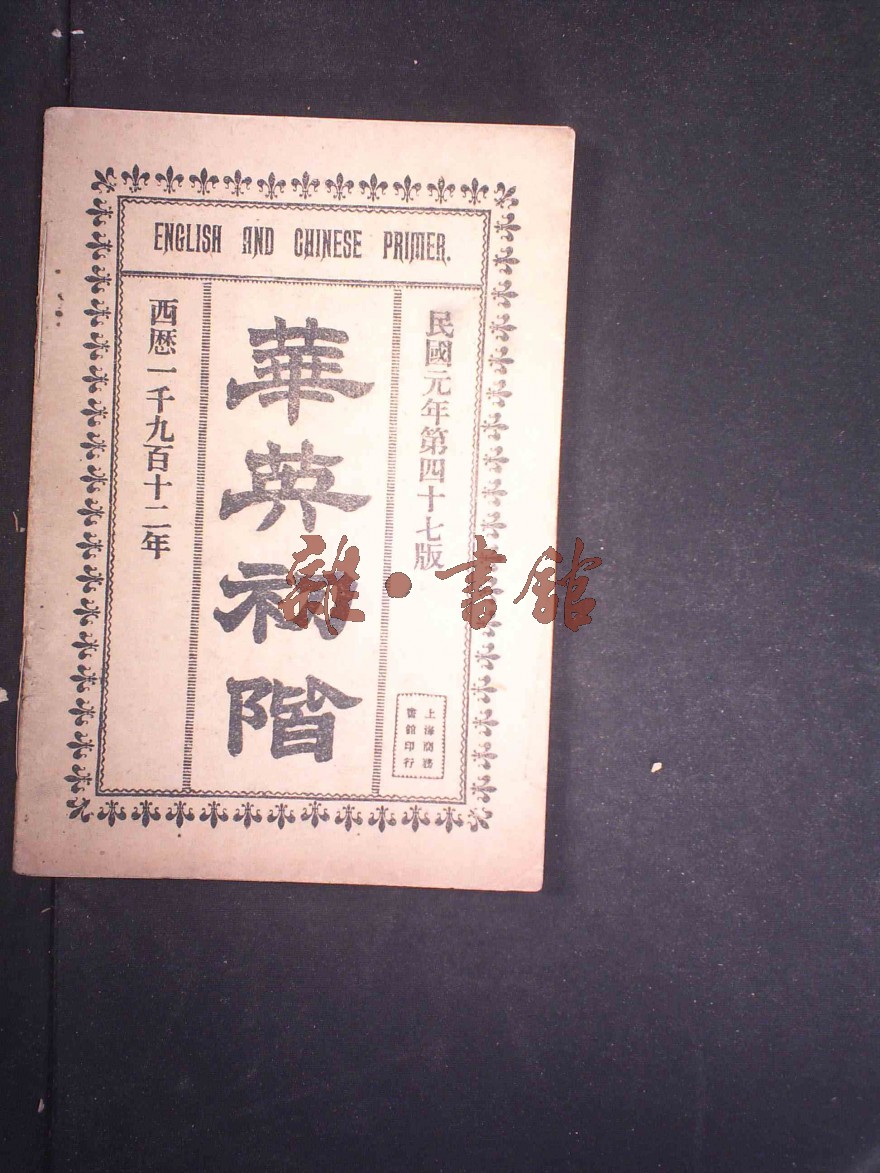 ENGLISH AND CHINESE PRIMER.
民國元年第四十七版
華英初階
西曆一千九百十二年
上海商務
書館印行
雜·書館